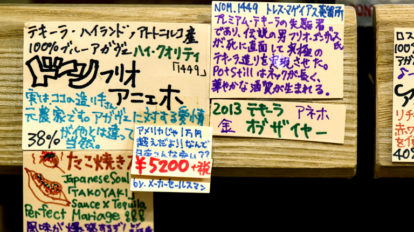 テキーラ・ハイランド/アトトニルコ産
100%ブルーアガヴェ ハイ・クオリティ
「1449」
ドン フリオ
アニェホ
実は、ココの造り手、
元農家です。アガヴェに対する愛情
が他とは違って
当然。
38%
アメリカじゃ1万円
越えだよ!!なんで
¥5200+税
by.メーカーセールスマン
たこ焼き
Japanese Soul
「TAKOYAKI」
Sauce × Tequila
Perfect Mariage
NOM.1449 トレス・マゲイアス蒸留所
プレミアム・テキーラの先駆者。
であり、伝説の男フリオ・ゴンザレス
が死に直面して究極の
テキーラ造りを実現させた。
Pot Stillはネックが長く、
華やかな酒質が生まれる。
2013 テキーラ アネホ
金 オブザイヤー
ロス
リチ
赤
40%